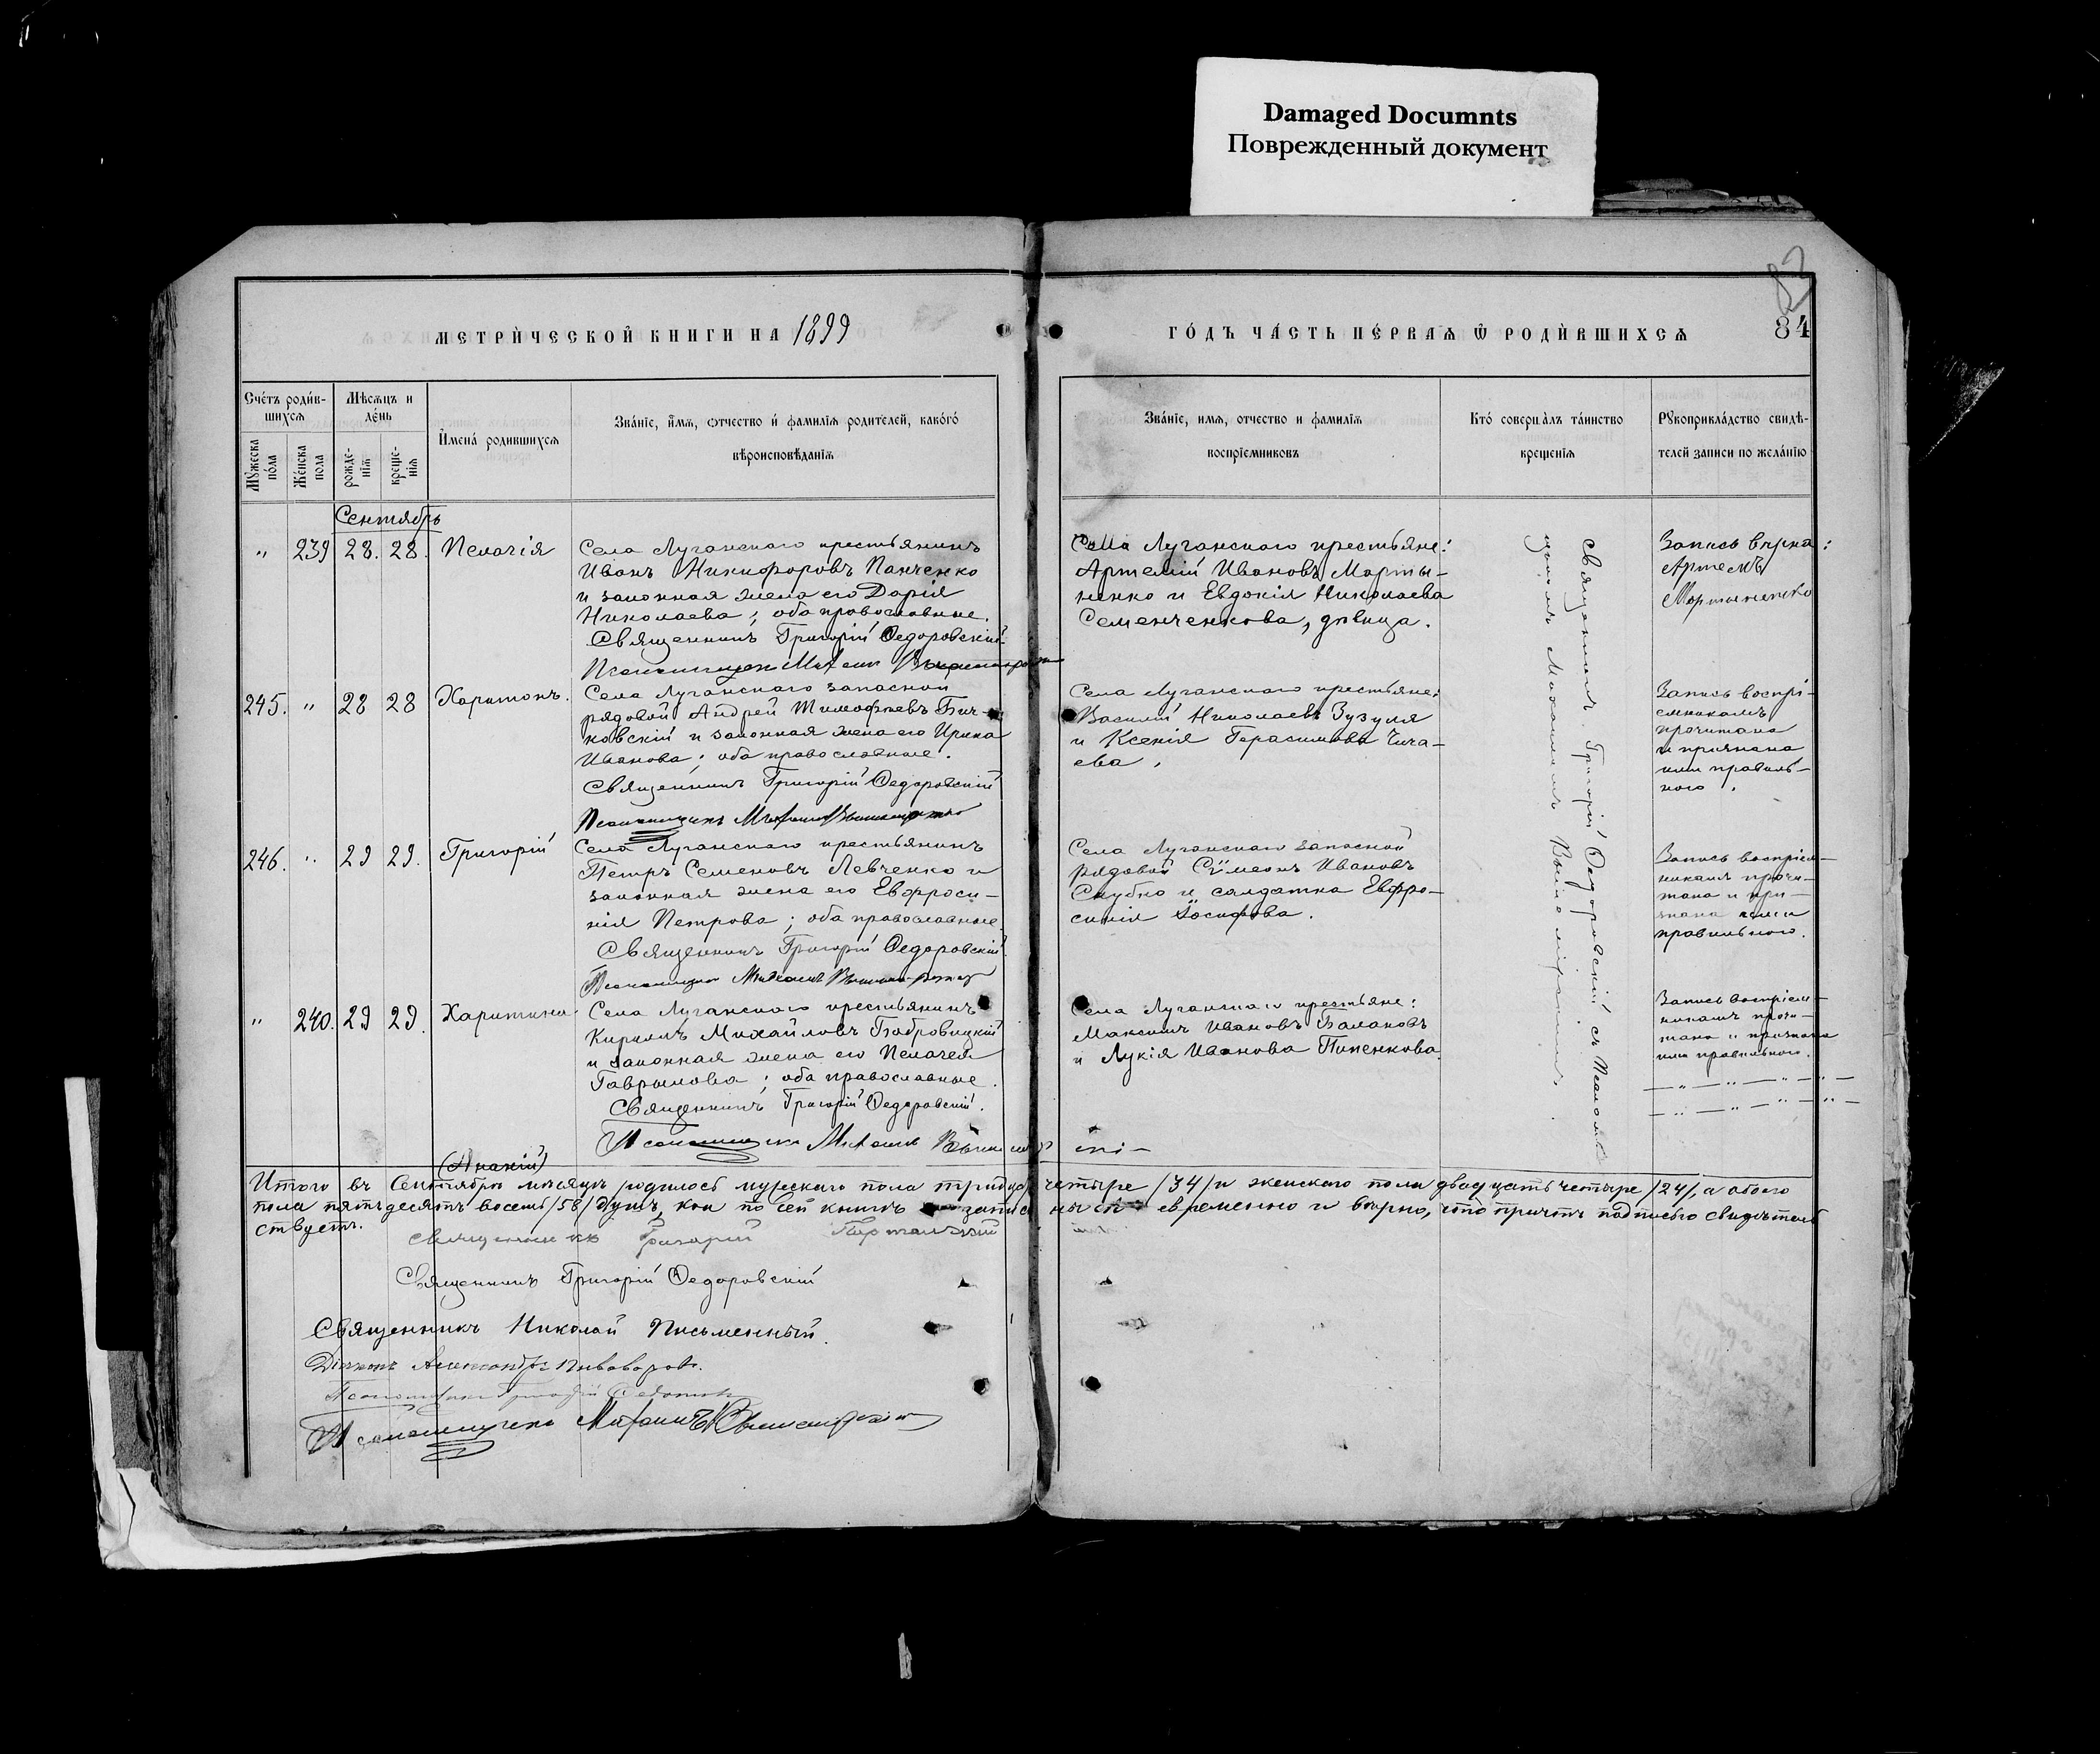 Damaged Documnts
Поврежденный документ
82
МЕТРИ́ЧЕСКОЙ КНИГИ НА 1899
ГО́ДЪ ЧА́СТЬ ПЕ́РВАѦ Ѿ РОДИ́ВШИХСѦ
84
Сче́тъ роди́в-
шихсѧ
Мꙋжеска по́ла
Же́нска пола
Мѣсѧцъ и
де́нь
рожде-
нїѧ
креще-
нїѧ
И҆мена́ родившихсѧ
Зва́нїе, и҆́мѧ, ѻтчество и҆ фамилїѧ родителей, како́го
вѣроисповѣданїѧ
Зва́нїе, имѧ, отчество и фамилїѧ
воспрїемниковъ
Кто́ соверша́лъ та́инство
крещенїѧ
Рꙋкоприкла́дство свидѣ-
телей записи по жела́нїю
Сентябрь
" 239 28. 28. Пелагія
Села Луганскаго крестьянинъ
Иванъ Никифоровъ Панченко
и законная жена его Дарія
Николаева; оба православные.
Священникъ Григорій Ѳедоровскій
Псаломщикъ Михаилъ
Села Луганскаго крестьяне:
Артемій Ивановъ Марты-
ненко и Евдокія Николаева
Семенченкова, дѣвица.
Запись вѣрна:
Артемъ
Мартыненко
245. " 28 28 Харитонъ.
Села Луганскаго запасной
рядовой Андрей Тимофѣевъ Бич-
ковскій и законная жена его Ирина
Иванова; оба православные.
Священникъ Григорій Ѳедоровскій
Псаломщикъ Михаилъ
Села Луганскаго крестьяне:
Василій Николаевъ Зузуля
и Ксенія Герасимова Чига-
ева.
Запись воспрі-
емникамъ
прочитана
и признана
ими правиль-
ного.
246. " 29 29. Григорій
Села Луганскаго крестьянинъ
Петръ Семеновъ Левченко и
законная жена его Евфроси-
нія Петрова; оба православные.
Священникъ Григорій Ѳедоровскій
Псаломщикъ Михаилъ
Села Луганскаго запасной
рядовой Сѵмеонъ Ивановъ
Скубко и солдатка Евфро-
синія Іосифова.
Запись воспріем-
никамъ прочи-
тана и при-
знана ими
правильного.
" 240. 29 29. Харитина
Села Луганскаго крестьянинъ
Кириллъ Михайловъ Бобровицкій
и законная жена его Пелагея
Гаврилова; оба православные.
Священникъ Григорій Ѳедоровскій.
Псаломщикъ Михаилъ
Села Луганскаго крестьяне:
Максимъ Ивановъ Балановъ
и Лукія Иванова Пипенкова.
Запись воспріем-
никамъ прочи-
тана и признана
ими правильного.
Священникъ Григорій Ѳедоровскій съ Псалом-
щикомъ Михаиломъ
Итого въ Сентябрѣ мѣсяцѣ родилось мужескаго пола тридцать четыре /34/ и женскаго пола двадцать четыре /24/, а обоего
пола пятьдесятъ восемь /58/ душъ, кои по сей книгѣ записаны своевременно и вѣрно, что причтъ подписью свидѣтель-
ствуетъ.
Священникъ Григорій
Священникъ Григорій Ѳедоровскій
Священникъ Николай Письменный.
Діаконъ Александръ Пивоваровъ.
Псаломщикъ Григорій
Псаломщикъ Михаилъ